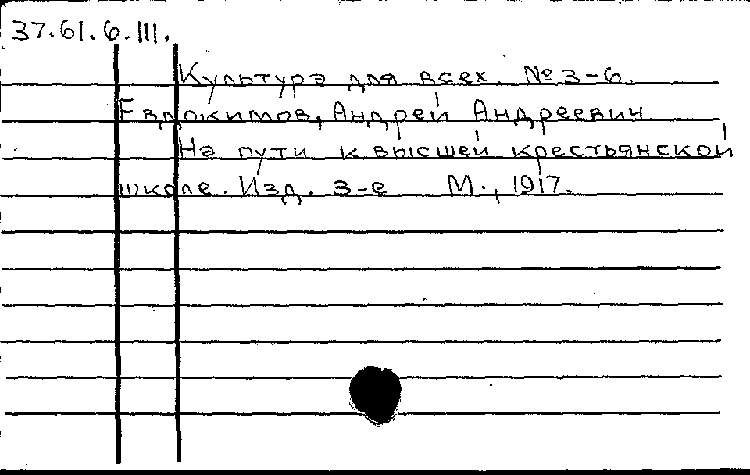 37.61.6.III.
Культура для всех. № 3-6.
Евдокимов, Андрей Андреевич
На пути к высшей крестьянской
школе. Изд. 3-е М., 1917.